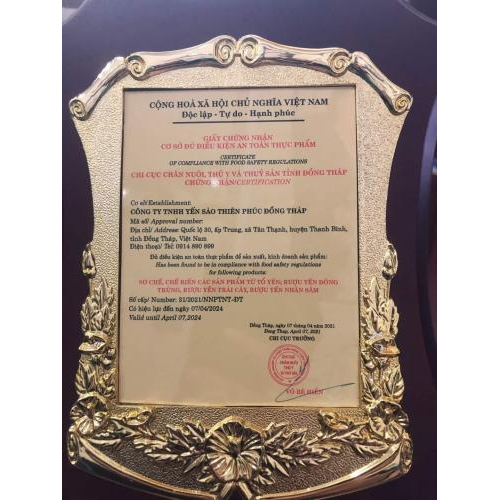 CỘNG HOÀ XÃ HỘI CHỦ NGHĨA VIỆT NAM
Độc lập - Tự do - Hạnh phúc
GIẤY CHỨNG NHẬN
CƠ SỞ ĐỦ ĐIỀU KIỆN AN TOÀN THỰC PHẨM
CERTIFICATE
OF COMPLIANCE WITH FOOD SAFETY REGULATIONS
CHI CỤC CHĂN NUÔI, THÚ Y VÀ THUỶ SẢN TỈNH ĐỒNG THÁP
CHỨNG NHẬN/CERTIFICATION
Cơ sở/Establishment:
CÔNG TY TNHH YẾN SÀO THIÊN PHÚC ĐỒNG THÁP
Mã số/ Approval number:
Địa chỉ/ Address: Quốc lộ 30, ấp Trung, xã Tân Thạnh, huyện Thanh Bình,
tỉnh Đồng Tháp, Việt Nam
Điện thoại/ Tel: 0914 890 899
Đủ điều kiện an toàn thực phẩm để sản xuất, kinh doanh sản phẩm:
Has been found to be in compliance with food safety regulations
for following products:
SƠ CHẾ, CHẾ BIẾN CÁC SẢN PHẨM TỪ TỔ YẾN; RƯỢU YẾN ĐÔNG
TRÙNG, RƯỢU YẾN TRÁI CÂY, RƯỢU YẾN NHÂN SÂM
Số cấp/ Number: 51/2021/NNPTNT-ĐT
Có hiệu lực đến ngày 07/04/2024
Valid until April 07,2024
Đồng Tháp, ngày 07 tháng 04 năm 2021
Dong Thap, April 07, 2021
CHI CỤC TRƯỞNG
VÕ BÉ HIỀN